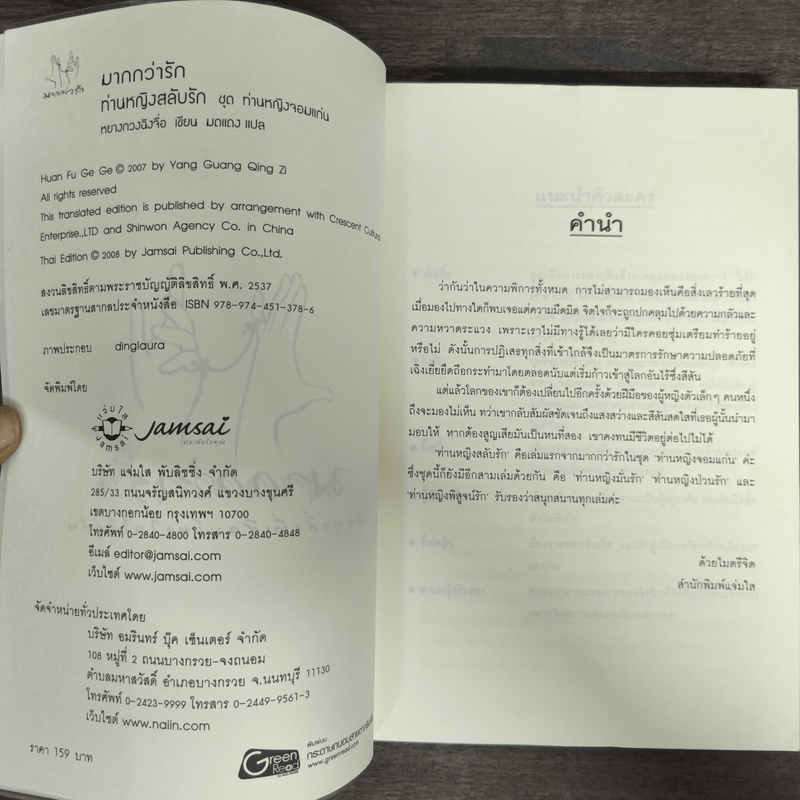 มากกว่ารัก
มากกว่ารัก
ท่านหญิงสลับรัก ชุด ท่านหญิงจอมแก่น
หยางกวงฉิงจื่อ เขียน มดแดง แปล
Huan Fu Ge Ge © 2007 by Yang Guang Qing Zi
All rights reserved
This translated edition is published by arrangement with Crescent Cultural
Enterprise.,LTD and Shinwon Agency Co. in China
Thai Edition © 2008 by Jamsai Publishing Co.,Ltd.
สงวนลิขสิทธิ์ตามพระราชบัญญัติลิขสิทธิ์ พ.ศ. 2537
เลขมาตรฐานสากลประจำหนังสือ ISBN 978-974-451-378-6
ภาพประกอบ dinglaura
จัดพิมพ์โดย
แจ่มใส
Jamsai
Jamsai
ประทับใจคุณ
บริษัท แจ่มใส พับลิชชิ่ง จำกัด
285/33 ถนนจรัญสนิทวงศ์ แขวงบางขุนศรี
เขตบางกอกน้อย กรุงเทพฯ 10700
โทรศัพท์ 0-2840-4800 โทรสาร 0-2840-4848
อีเมล์ editor@jamsai.com
เว็บไซต์ www.jamsai.com
จัดจำหน่ายทั่วประเทศโดย
บริษัท อมรินทร์ บุ๊ค เซ็นเตอร์ จำกัด
108 หมู่ที่ 2 ถนนบางกรวย-จงถนอม
ตำบลมหาสวัสดิ์ อำเภอบางกรวย จ.นนทบุรี 11130
โทรศัพท์ 0-2423-9999 โทรสาร 0-2449-9561-3
เว็บไซต์ www.naiin.com
ราคา 159 บาท
Green Read
พิมพ์บน
กระดาษถนอมสายตากรีนรีด
www.greenread.com
แนะนำตัวละคร
คำนำ
ว่ากันว่าในความพิการทั้งหมด การไม่สามารถมองเห็นคือสิ่งเลวร้ายที่สุด
เมื่อมองไปทางใดก็พบเจอแต่ความมืดมิด จิตใจก็จะถูกปกคลุมไปด้วยความกลัวและ
ความหวาดระแวง เพราะเราไม่มีทางรู้ได้เลยว่ามีใครคอยซุ่มเตรียมทำร้ายอยู่
หรือไม่ ดังนั้นการปฏิเสธทุกสิ่งที่เข้าใกล้จึงเป็นมาตรการรักษาความปลอดภัยที่
เฉิงเยี่ยยึดถือกระทำมาโดยตลอดนับแต่เริ่มก้าวเข้าสู่โลกอันไร้ซึ่งสีสัน
แต่แล้วโลกของเขาก็ต้องเปลี่ยนไปอีกครั้งด้วยฝีมือของผู้หญิงตัวเล็กๆ คนหนึ่ง
ถึงจะมองไม่เห็น ทว่าเขากลับสัมผัสชัดเจนถึงแสงสว่างและสีสันสดใสที่เธอผู้นั้นนำมา
มอบให้ หากต้องสูญเสียมันเป็นหนที่สอง เขาคงทนมีชีวิตอยู่ต่อไปไม่ได้
'ท่านหญิงสลับรัก' คือเล่มแรกจากมากกว่ารักในชุด 'ท่านหญิงจอมแก่น' ค่ะ
ซึ่งชุดนี้ก็ยังมีอีกสามเล่มด้วยกัน คือ 'ท่านหญิงมั่นรัก' 'ท่านหญิงป่วนรัก' และ
'ท่านหญิงพิสูจน์รัก' รับรองว่าสนุกสนานทุกเล่มค่ะ
ด้วยไมตรีจิต
สำนักพิมพ์แจ่มใส